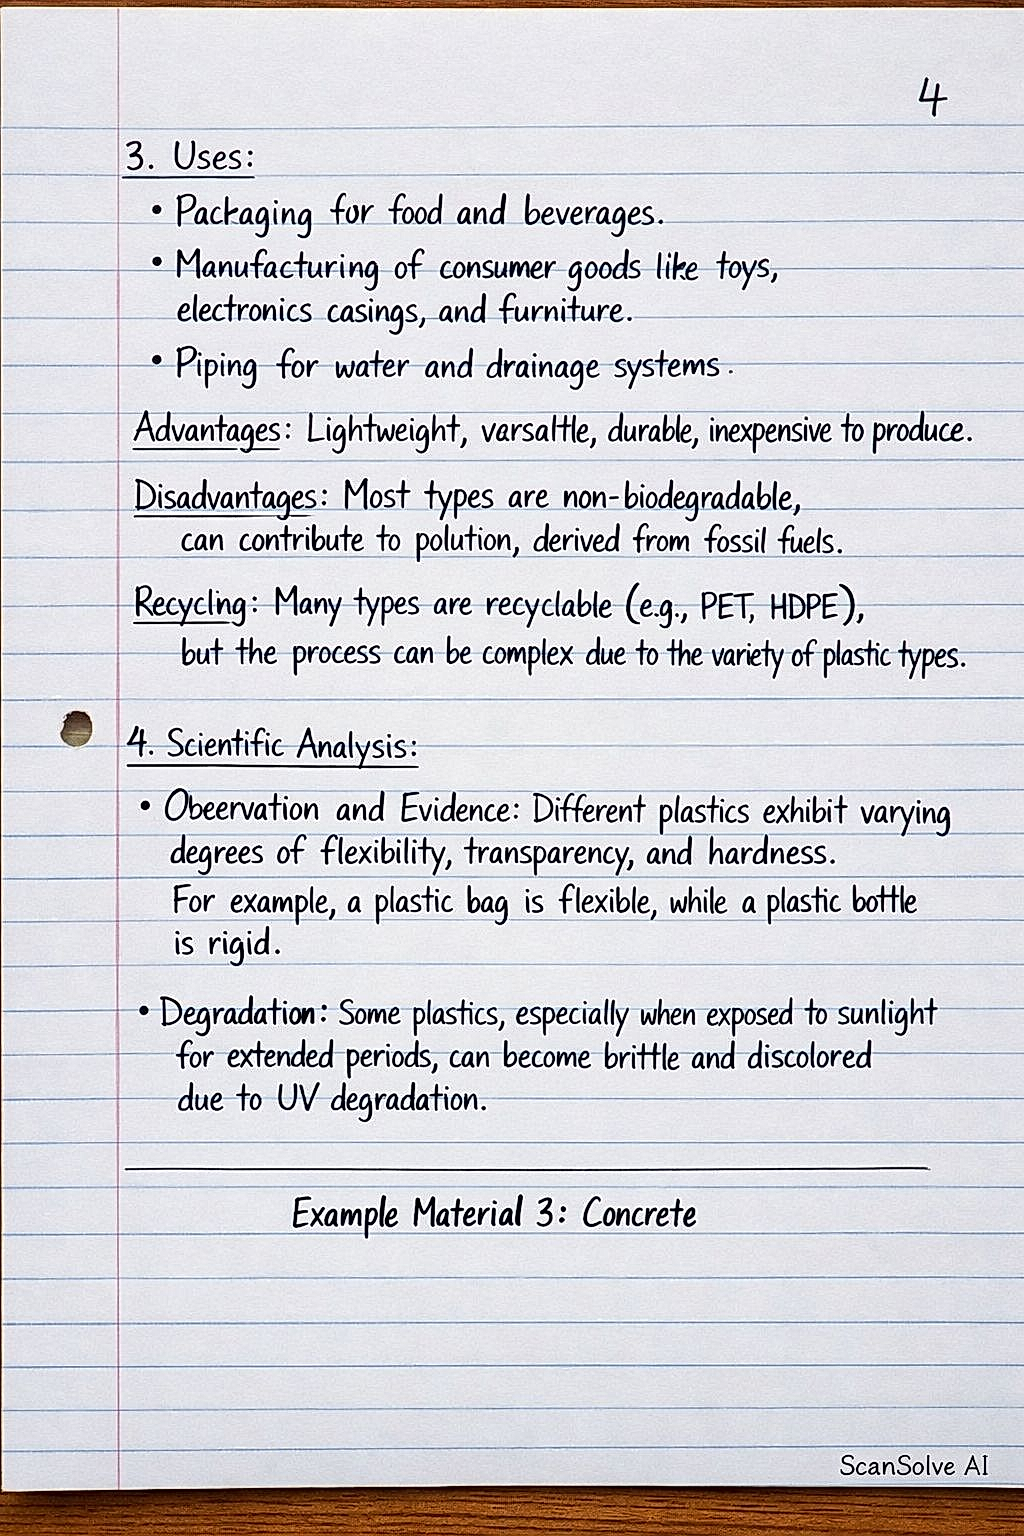 4
3. Uses:
• Packaging for food and beverages.
• Manufacturing of consumer goods like toys,
electronics casings, and furniture.
• Piping for water and drainage systems.
Advantages: Lightweight, varsaltle, durable, inexpensive to produce.
Disadvantages: Most types are non-biodegradable,
can contribute to polution, derived from fossil fuels.
Recyclng: Many types are recyclable (e.g., PET, HDPE),
but the process can be complex due to the variety of plastic types.
4. Scientific Analysis:
• Obeervation and Evidence: Different plastics exhibit varying
degrees of flexibility, transparency, and hardness.
For example, a plastic bag is flexible, while a plastic bottle
is rigid.
• Degradation: Some plastics, especially when exposed to sunlight
for extended periods, can become brittle and discolored
due to UV degradation.
Example Material 3: Concrete
ScanSolve AI